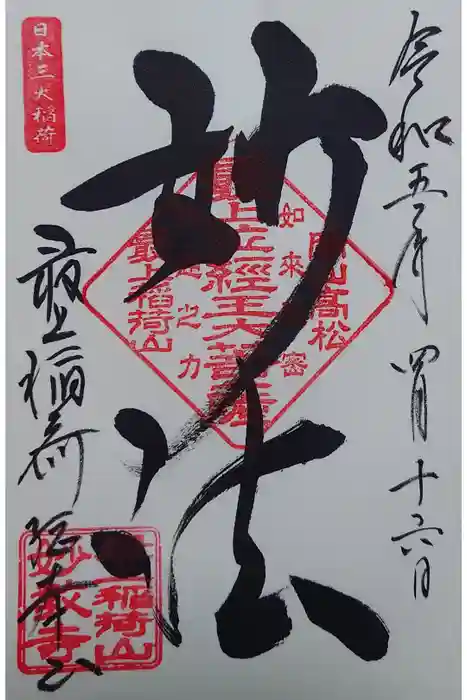 令和五年四月十六日
妙法
最上稲荷
総本山
日本三大稲荷
岡山高松
如来秘密
最上位経王大菩薩
神通之力
最上稲荷山
稲荷山
妙教寺